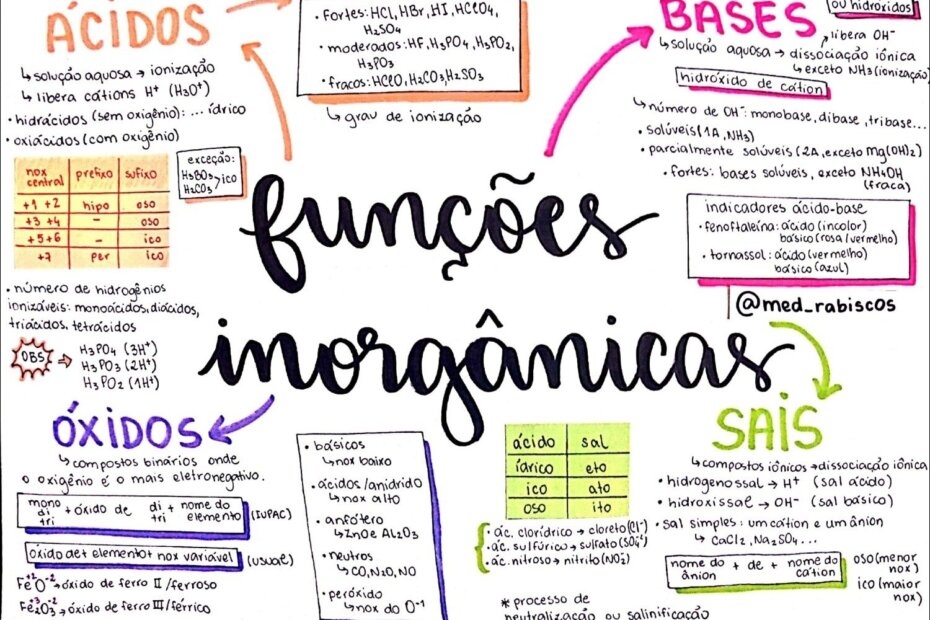 ÁCIDOS
↳ solução aquosa → ionização
↳ libera cátions H⁺ (H₃O⁺)
• hidrácidos (sem oxigênio): ... ídrico
• oxiácidos (com oxigênio)
nox central | prefixo | sufixo
+1 +2 | hipo | oso
+3 +4 | – | oso
+5 +6 | – | ico
+7 | per | ico
exceção:
H₃BO₃
H₂CO₃ > ico
• número de hidrogênios
ionizáveis: monoácidos, diácidos,
triácidos, tetrácidos
OBS → H₃PO₄ (3H⁺)
H₃PO₃ (2H⁺)
H₃PO₂ (1H⁺)
• fortes: HCl, HBr, HI, HClO₄,
H₂SO₄
• moderados: HF, H₃PO₄, H₃PO₂,
H₃PO₃
• fracos: HClO, H₂CO₃, H₂SO₃
↳ grau de ionização
BASES
ou hidróxidos
libera OH⁻
↳ solução aquosa → dissociação iônica
↳ exceto NH₃ (ionização)
hidróxido de cátion
↳ número de OH⁻: monobase, dibase, tribase...
• solúveis (1A, NH₃)
• parcialmente solúveis (2A, exceto Mg(OH)₂)
• fortes: bases solúveis, exceto NH₄OH
(fraca)
indicadores ácido-base
• fenoftaleína: ácido (incolor)
básico (rosa/vermelho)
• tornassol: ácido (vermelho)
básico (azul)
@med_rabiscos
funções
inorgânicas
ÓXIDOS
↳ compostos binários onde
o oxigênio é o mais eletronegativo.
mono di tri + óxido de di tri + nome do elemento (IUPAC)
óxido de + elemento + nox variável (usual)
Fe⁺²O⁻² → óxido de ferro II / ferroso
Fe₂⁺³O₃⁻² → óxido de ferro III / férrico
• básicos
↳ nox baixo
• ácidos/anidrido
↳ nox alto
• anfótero
↳ ZnO e Al₂O₃
• neutros
↳ CO, N₂O, NO
• peróxido
↳ nox do O⁻¹
ácido | sal
ídrico | eto
ico | ato
oso | ito
• ác. clorídrico → cloreto (Cl⁻)
• ác. sulfúrico → sulfato (SO₄⁻)
• ác. nitroso → nitrito (NO₂⁻)
* processo de
neutralização ou salinificação
SAIS
↳ compostos iônicos → dissociação iônica
• hidrogenossal → H⁺ (sal ácido)
• hidroxissal → OH⁻ (sal básico)
• sal simples: um cátion e um ânion
↳ CaCl₂, Na₂SO₄...
nome do ânion + de + nome do cátion
oso (menor nox)
ico (maior nox)